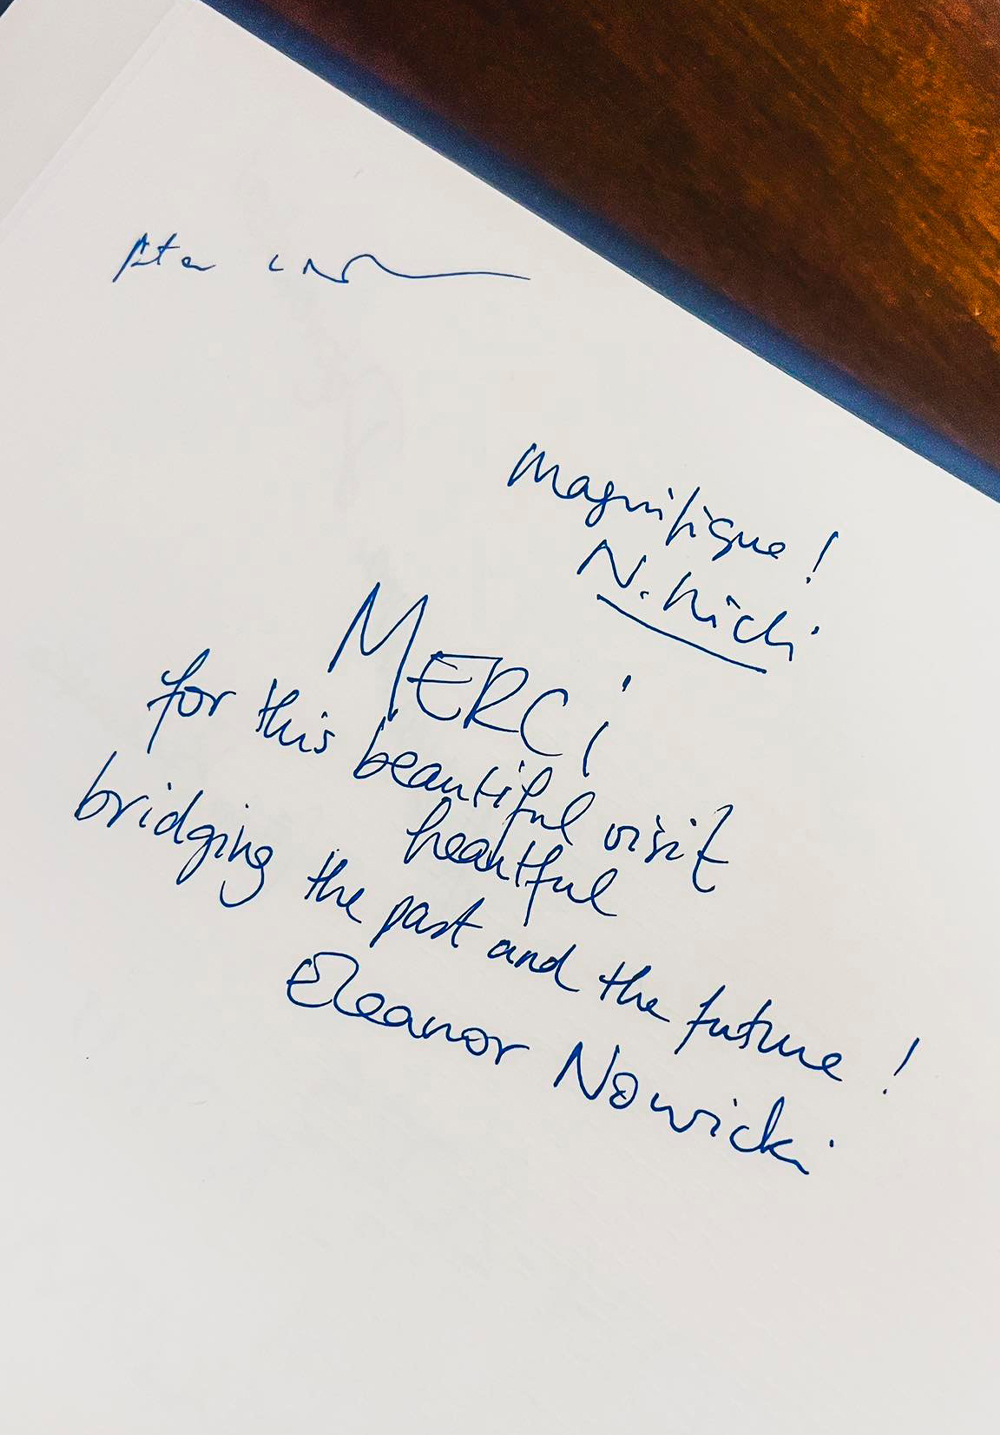 Magnifique !
MERCi
for this beautiful visit
heartful
bridging the past and the future !
Eleanor Nowicki